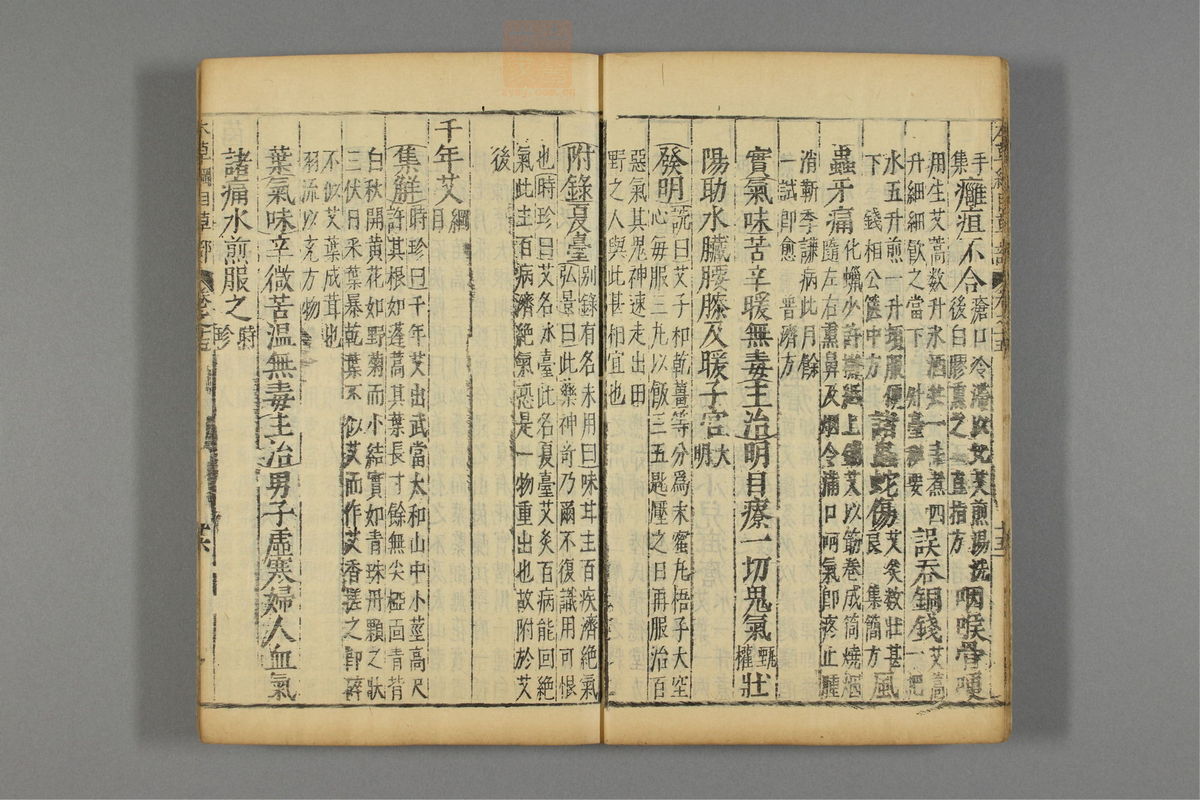 手集
癰疽不合
瘡口冷滯以艾煎湯洗
後白膠熏之 直指方
咽喉骨哽
用生艾蒿數升水酒共一斗煮四
升細細飲之當下 外臺秘要
誤吞銅錢
艾蒿一把
水五升煎一升頓服便
下 錢相公篋中方
諸蟲蛇傷
艾灸數壯甚
良 集簡方
風
蟲牙痛
化蠟少許攤紙上鋪艾以筯卷成筒燒烟
隨左右熏鼻及烟令滿口呵氣即疼止腫
消靳季謙病此月餘
一試即愈 普濟方
實氣味苦辛暖無毒主治明目療一切鬼氣
甄權
壯
陽助水臟腰膝及暖子宮
大明
發明
詵曰艾子和乾薑等分爲末蜜丸梧子大空
心每服三丸以飯三五匙壓之日再服治百
惡氣其鬼神速走出田
野之人與此甚相宜也
附錄夏臺
別錄有名未用曰味甘主百疾濟絕氣
弘景曰此藥神奇乃爾不復識用可恨
也時珍曰艾名冰臺此名夏臺艾灸百病能回絕
氣此主百病濟絕氣恐是一物重出也故附於艾
後
千年艾
綱目
集解
時珍曰千年艾出武當太和山中小莖高尺
許其根如蓬蒿其葉長寸餘無尖椏面青背
白秋開黃花如野菊而小結實如青珠丹顆之狀
三伏日采葉暴乾葉不似艾而作艾香搓之即碎
不似艾葉成茸也
羽流以充方物
葉氣味辛微苦溫無毒主治男子虛寒婦人血氣
諸痛水煎服之
時珍
本草綱目草部